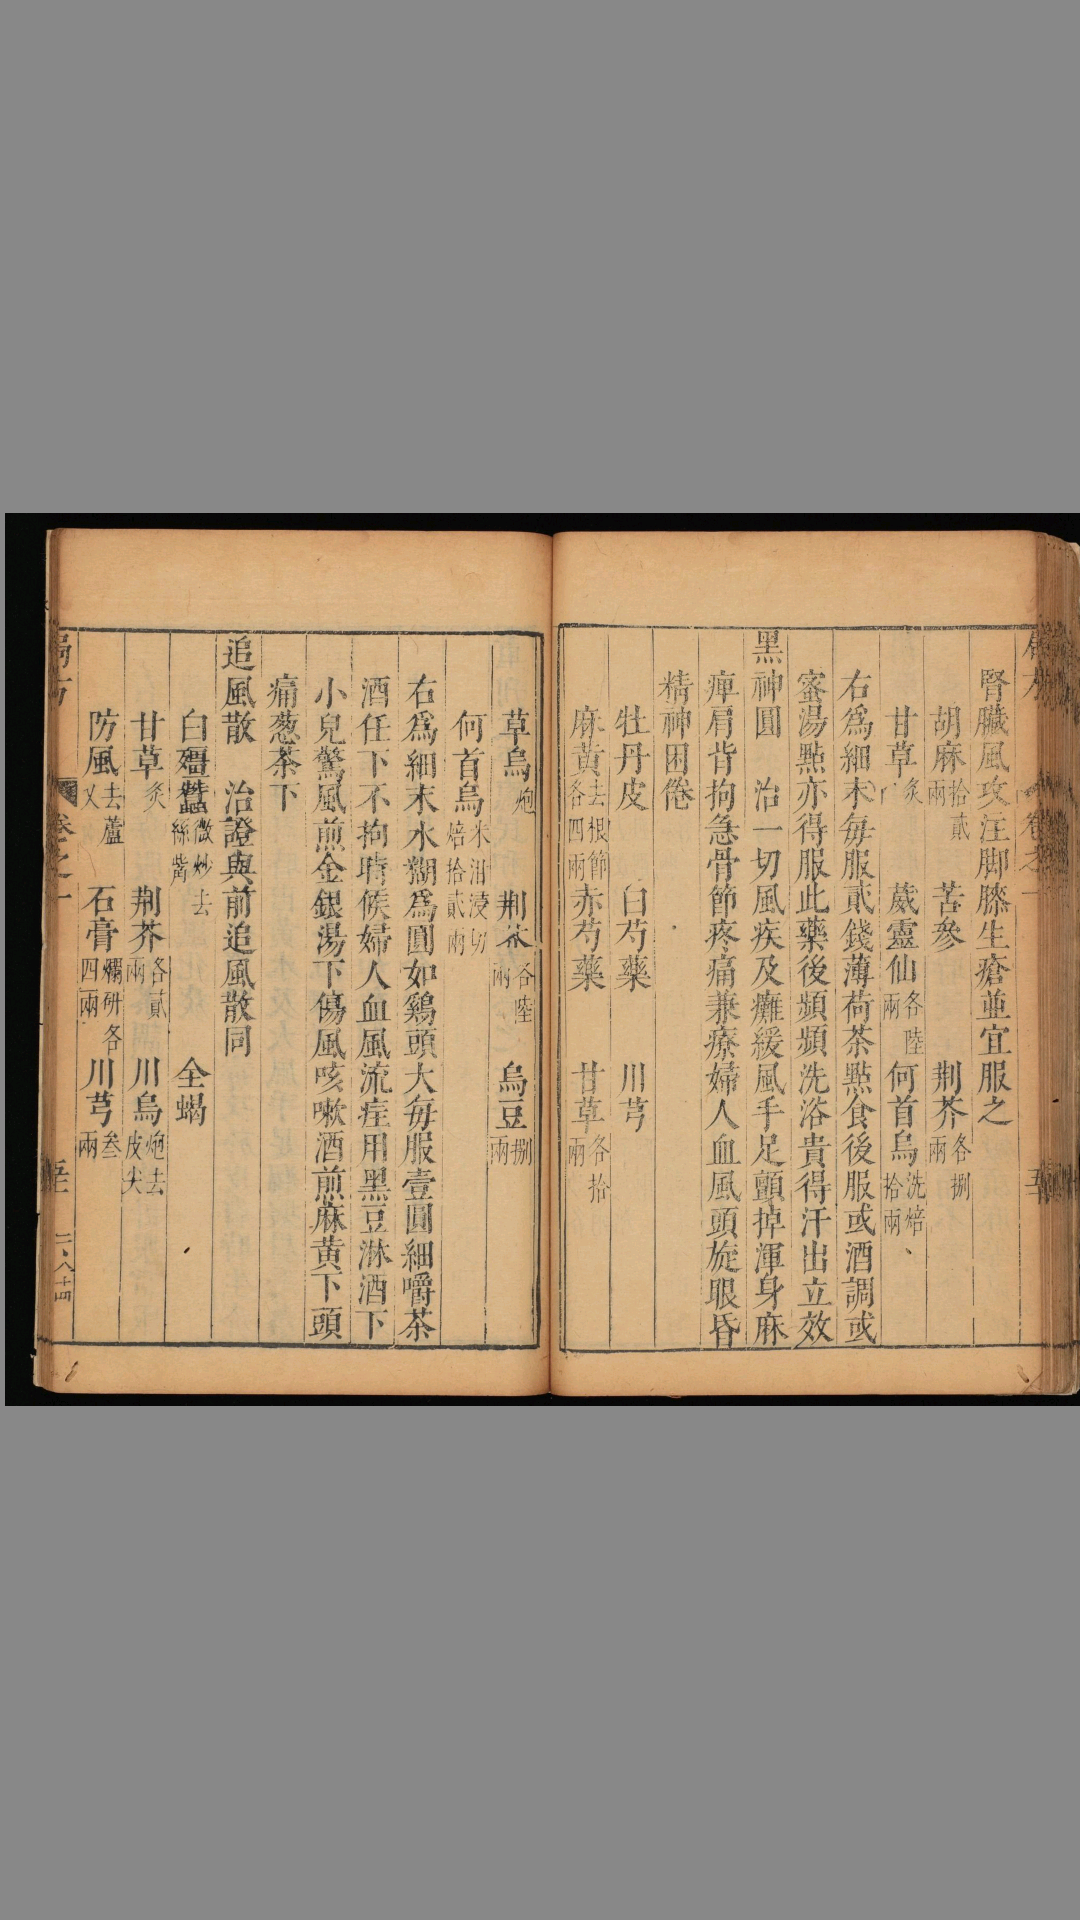 腎臟風攻注脚膝生瘡並宜服之
胡麻拾貳兩 苦參 荆芥各捌兩
甘草炙 葳靈仙各陸兩 何首烏洗焙拾兩
右爲細末每服貳錢薄荷茶點食後服或酒調或
蜜湯點亦得服此藥後頻頻洗浴貴得汗出立效
黑神圓 治一切風疾及癱緩風手足顫掉渾身麻
痺肩背拘急骨節疼痛兼療婦人血風頭旋眼昏
精神困倦
牡丹皮 白芍藥 川芎
麻黃去根節各四兩 赤芍藥 甘草各拾兩
草烏炮 荆芥各陸兩 烏豆捌兩
何首烏米泔浸切焙拾貳兩
右爲細末水糊爲圓如鷄頭大每服壹圓細嚼茶
酒任下不拘時候婦人血風流疰用黑豆淋酒下
小兒驚風煎金銀湯下傷風咳嗽酒煎麻黃下頭
痛葱茶下
追風散 治證與前追風散同
白殭蠶微炒去絲觜 全蝎
甘草炙 荆芥各貳兩 川烏炮去皮尖
防風去蘆叉 石膏爛研各四兩 川芎叁兩
局方 卷之一